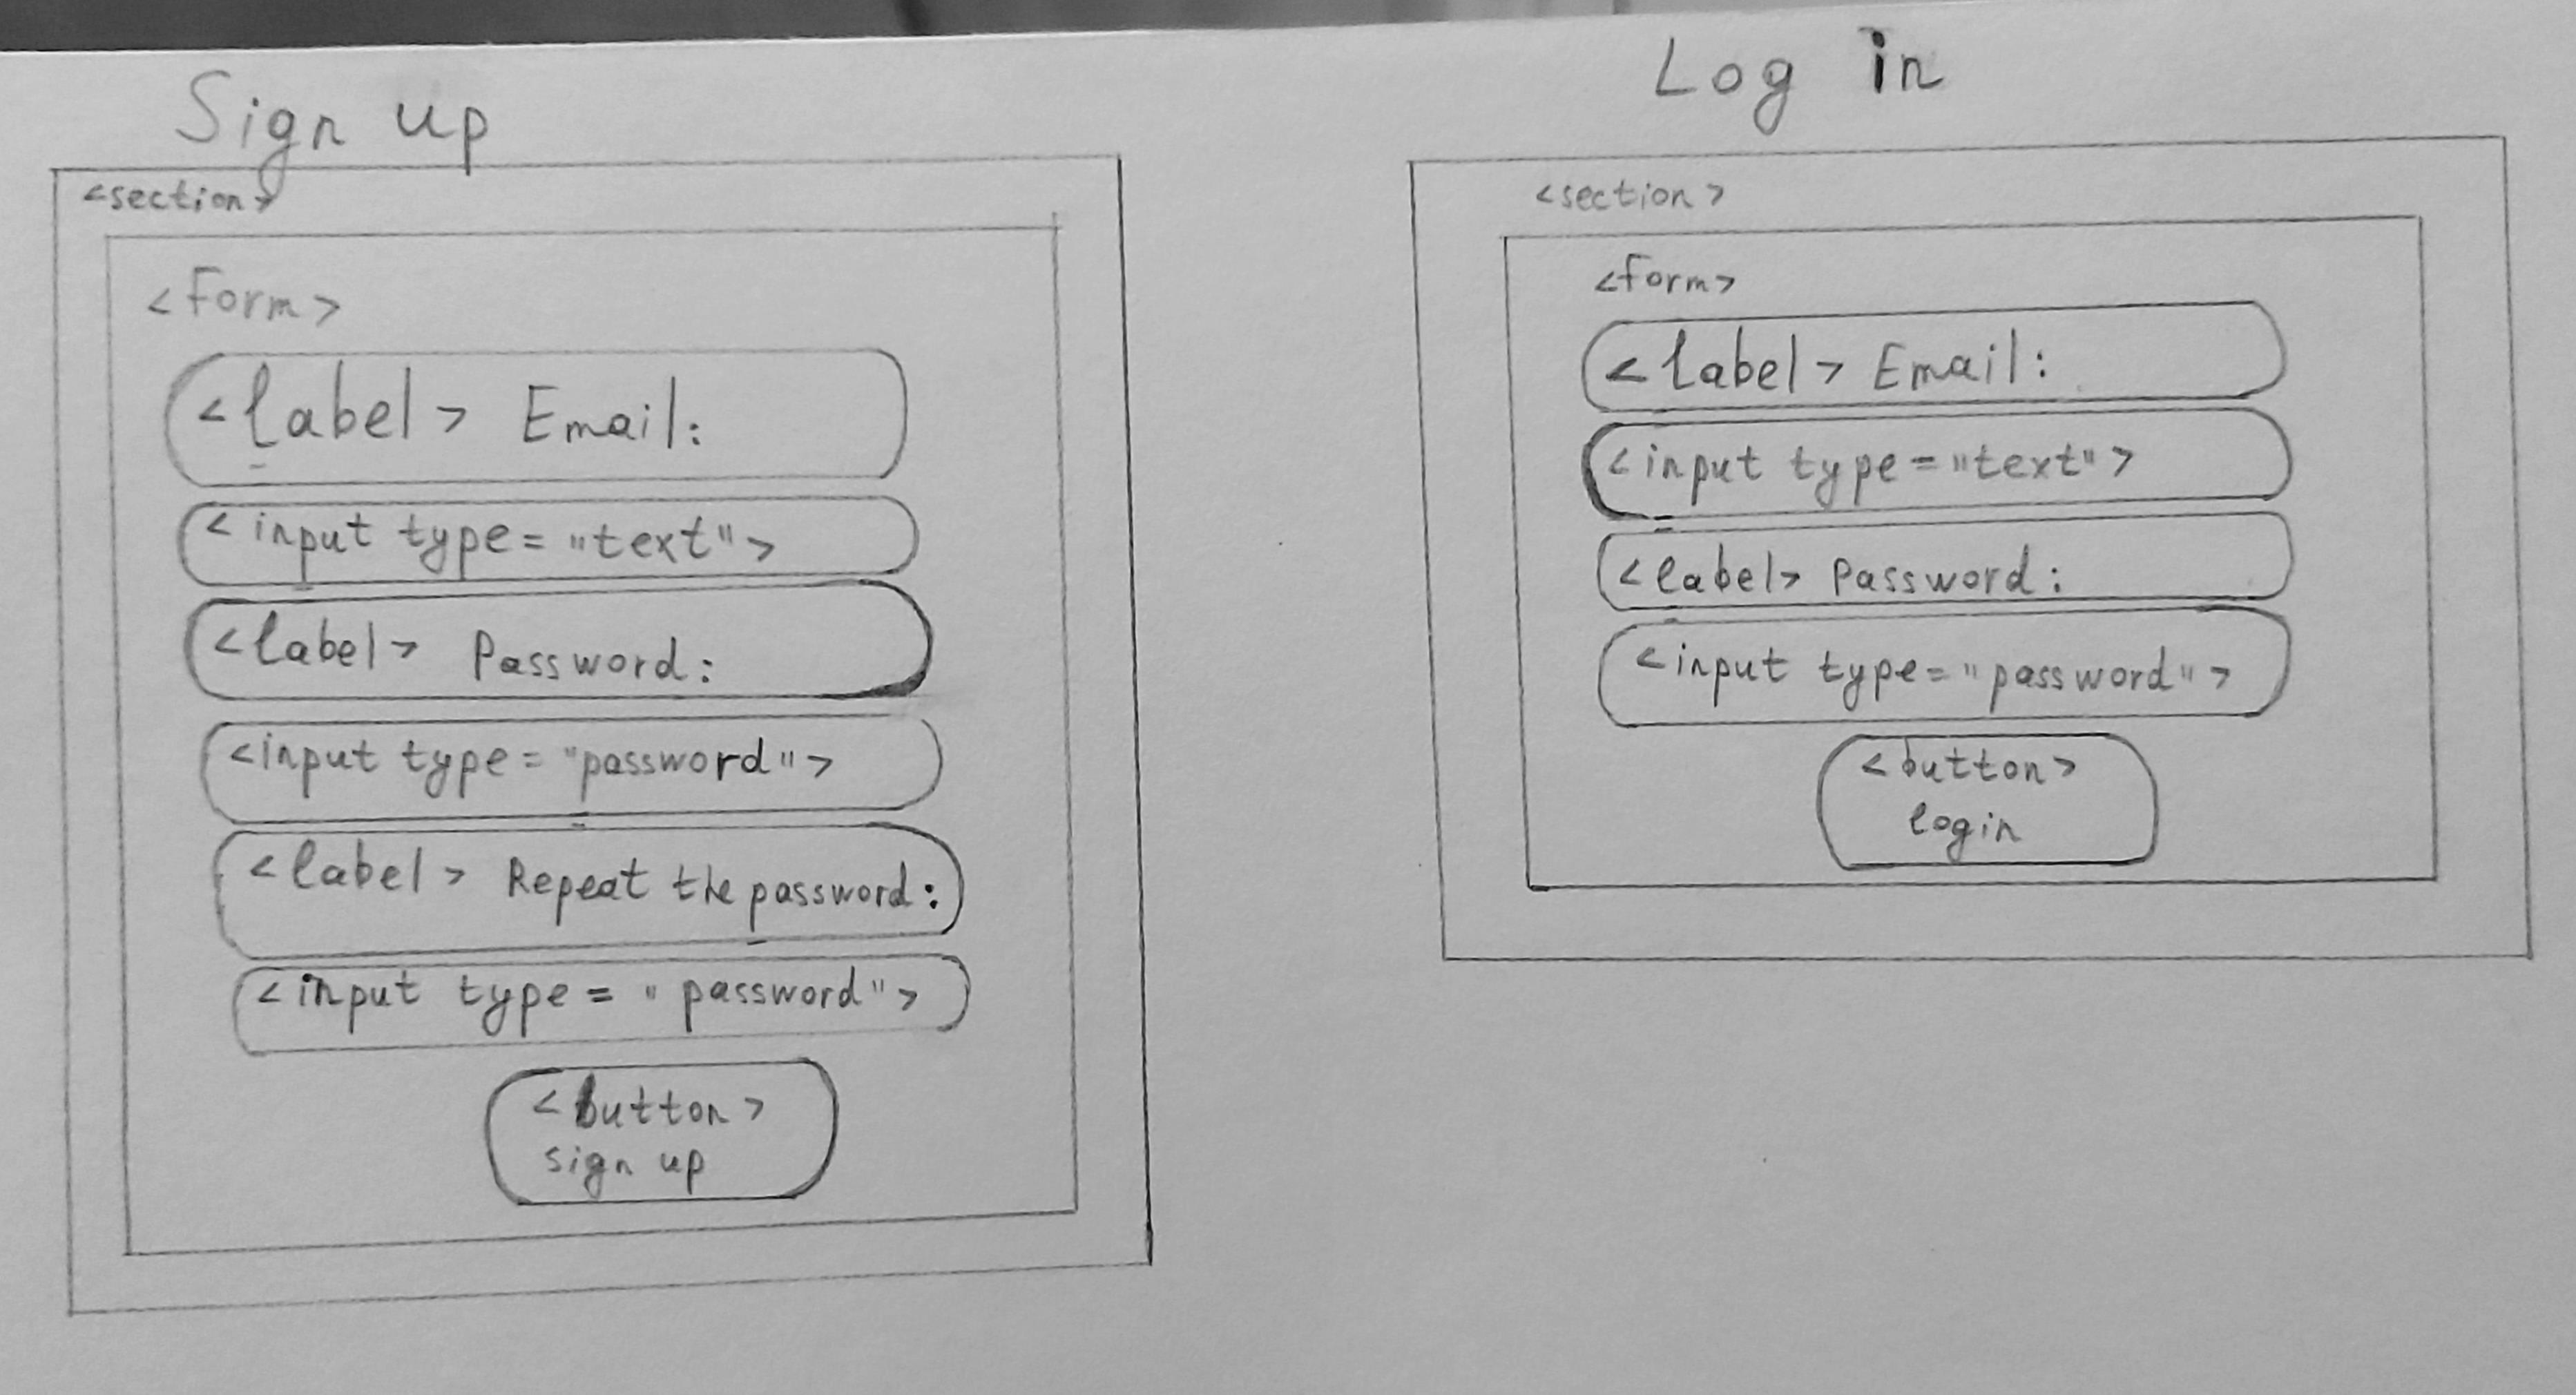 Sign up
<section>
<form>
<label> Email:
<input type="text">
<label> Password:
<input type="password">
<label> Repeat the password:
<input type="password">
<button>
sign up
Log in
<section>
<form>
<label> Email:
<input type="text">
<label> Password:
<input type="password">
<button>
login